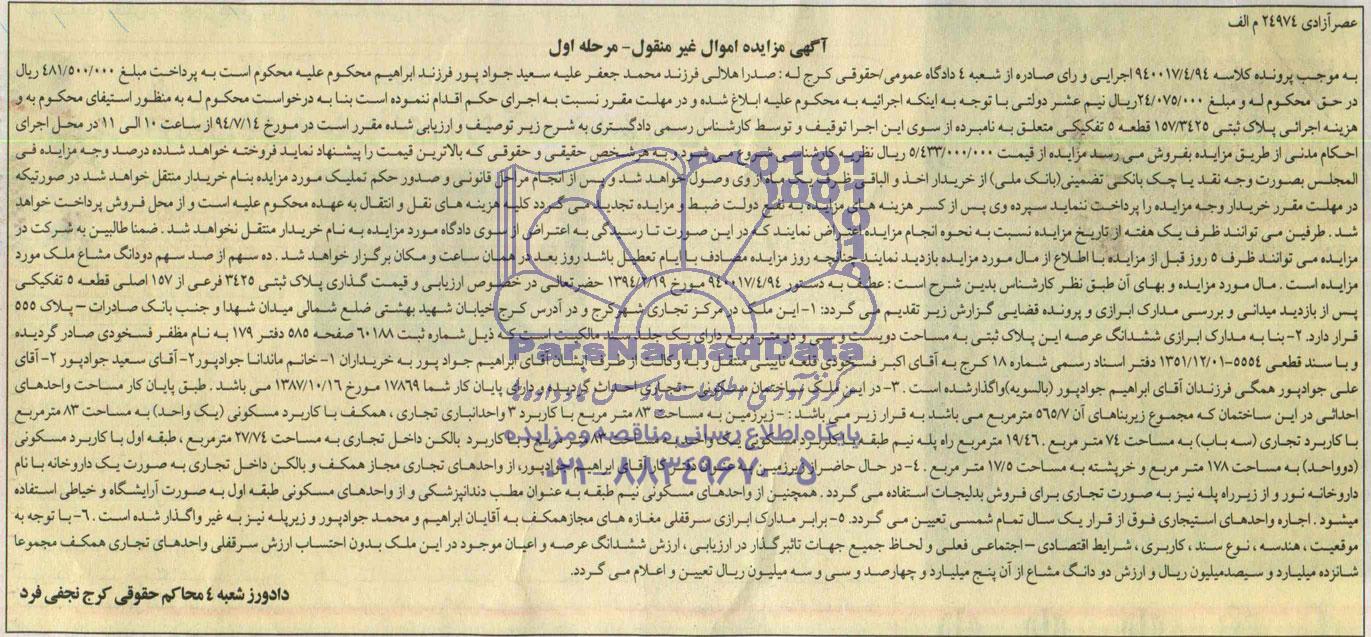 عصر آزادی ۲۴۹۷۴ م الف
آگهی مزایده اموال غیر منقول - مرحله اول
به موجب پرونده کلاسه ۹۴۰۰۱۷/۴/۹۴ اجرایی و رای صادره از شعبه ۴ دادگاه عمومی/حقوقی کرج له : صدرا هلالی فرزند محمد جعفر علیه سعید جواد پور فرزند ابراهیم محکوم علیه محکوم است به پرداخت مبلغ ۴۸۱/۵۰۰/۰۰۰ ریال
در حق محکوم له و مبلغ ۲۴/۰۷۵/۰۰۰ریال نیم عشر دولتی با توجه به اینکه اجرائیه به محکوم علیه ابلاغ شده و در مهلت مقرر نسبت به اجرای حکم اقدام ننموده است بنا به درخواست محکوم له به منظور استیفای محکوم به و
هزینه اجرائی پلاک ثبتی ۱۵۷/۳۴۲۵ قطعه ۵ تفکیکی متعلق به نامبرده از سوی این اجرا توقیف و توسط کارشناس رسمی دادگستری به شرح زیر توصیف و ارزیابی شده مقرر است در مورخ ۹۴/۷/۱۴ از ساعت ۱۰ الی ۱۱ در محل اجرای
احکام مدنی از طریق مزایده بفروش می رسد مزایده از قیمت ۵/۴۳۳/۰۰۰/۰۰۰ ریال نظریه کارشناسی شروع می شود و به هر شخص حقیقی و حقوقی که بالاترین قیمت را پیشنهاد نماید فروخته خواهد شدده درصد وجه مزایده فی
المجلس بصورت وجه نقد یا چک بانکی تضمینی(بانک ملی) از خریدار اخذ و الباقی ظرف یک ماه از وی وصول خواهد شد و پس از انجام مراحل قانونی و صدور حکم تملیک مورد مزایده بنام خریدار منتقل خواهد شد در صورتیکه
در مهلت مقرر خریدار وجه مزایده را پرداخت ننماید سپرده وی پس از کسر هزینه های مزایده به نفع دولت ضبط و مزایده تجدید می گردد کلیه هزینه های نقل و انتقال به عهده محکوم علیه است و از محل فروش پرداخت خواهد
شد . طرفین می توانند ظرف یک هفته از تاریخ مزایده نسبت به نحوه انجام مزایده اعتراض نمایند که در این صورت تا رسیدگی به اعتراض از سوی دادگاه مورد مزایده به نام خریدار منتقل نخواهد شد . ضمنا طالبین به شرکت در
مزایده می توانند ظرف ۵ روز قبل از مزایده با اطلاع از مال مورد مزایده بازدید نمایند چنانچه روز مزایده مصادف با ایام تعطیل باشد روز بعد در همان ساعت و مکان برگزار خواهد شد . ده سهم از صد سهم دودانگ مشاع ملک مورد
مزایده است . مال مورد مزایده و بهای آن طبق نظر کارشناس بدین شرح است : عطف به دستور ۹۴۰۰۱۷/۴/۹۴ مورخ ۱۳۹۴/۲/۱۹ حضرتعالی در خصوص ارزیابی و قیمت گذاری پلاک ثبتی ۳۴۲۵ فرعی از ۱۵۷ اصلی قطعه ۵ تفکیکی
پس از بازدید میدانی و بررسی مدارک ابرازی و پرونده قضایی گزارش زیر تقدیم می گردد: ۱- این ملک در مرکز تجاری شهر کرج و در آدرس کرج خیابان شهید بهشتی ضلع شمالی میدان شهدا و جنب بانک صادرات – پلاک ۵۵۵
قرار دارد. ۲- بنا به مدارک ابرازی ششدانگ عرصه این پلاک ثبتی به مساحت دویست و سی و دو متر مربع دارای یک جلد سند مالکیت است که ذیل شماره ثبت ۶۰۱۸۸ صفحه ۵۸۵ دفتر ۱۷۹ به نام مظفر فسخودی صادر گردیده
و با سند قطعی ۵۵۵۴-۱۳۵۱/۱۲/۰۱ دفتر اسناد رسمی شماره ۱۸ کرج به آقای اکبر فسخودی قلعه نایینی منتقل و به وکالت از طرف ایشان آقای ابراهیم جواد پور به خریداران ۱- خانم ماندانا جوادپور ۲- آقای سعید جوادپور ۲- آقای
علی جوادپور همگی فرزندان آقای ابراهیم جوادپور (بالسویه)واگذارشده است . ۳- در این ملک ساختمان مسکونی – تجاری احداث گردیده و دارای پایان کار شما ۱۷۸۶۹ مورخ ۱۳۸۷/۱۰/۱۶ می باشد . طبق پایان کار مساحت واحدهای
احداثی در این ساختمان که مجموع زیربناهای آن ۵۶۵/۷ مترمربع می باشد به قرار زیر می باشد : - زیرزمین به مساحت ۸۳ متر مربع با کاربرد ۳ واحدانباری تجاری ، همکف با کاربرد مسکونی (یک واحد) به مساحت ۸۳ مترمربع
با کاربرد تجاری (سه باب) به مساحت ۷۴ متر مربع . ۱۹/۴۶ مترمربع راه پله نیم طبقه با کاربرد مسکونی یک واحد به مساحت متر مربع و با کاربرد بالکن داخل تجاری به مساحت ۲۷/۷۴ مترمربع ، طبقه اول با کاربرد مسکونی
(دوواحد) به مساحت ۱۷۸ متر مربع و خرپشته به مساحت ۱۷/۵ متر مربع . ۴- در حال حاضر از زیرزمین به عنوان دفتر کار آقای ابراهیم جوادپور، از واحدهای تجاری مجاز همکف و بالکن داخل تجاری به صورت یک داروخانه با نام
داروخانه نور و از زیرراه پله نیز به صورت تجاری برای فروش بدلیجات استفاده می گردد . همچنین از واحدهای مسکونی نیم طبقه به عنوان مطب دندانپزشکی و از واحدهای مسکونی طبقه اول به صورت آرایشگاه و خیاطی استفاده
میشود . اجاره واحدهای استیجاری فوق از قرار یک سال تمام شمسی تعیین می گردد. ۵- برابر مدارک ابرازی سرقفلی مغازه های مجازهمکف به آقایان ابراهیم و محمد جوادپور و زیرپله نیز به غیر واگذار شده است . ۶- با توجه به
موقعیت ، هندسه ، نوع سند ، کاربری ، شرایط اقتصادی – اجتماعی فعلی و لحاظ جمیع جهات تاثیرگذار در ارزیابی ، ارزش ششدانگ عرصه و اعیان موجود در این ملک بدون احتساب ارزش سرقفلی واحدهای تجاری همکف مجموعا
شانزده میلیارد و سیصدمیلیون ریال و ارزش دو دانگ مشاع از آن پنج میلیارد و چهارصد و سی و سه میلیون ریال تعیین و اعلام می گردد.
دادورز شعبه ۴ محاکم حقوقی کرج نجفی فرد
ParsNamadData
پایگاه اطلاع رسانی مناقصه و مزایده
۰۲۱-۸۸۳۴۹۶۷۰-۵